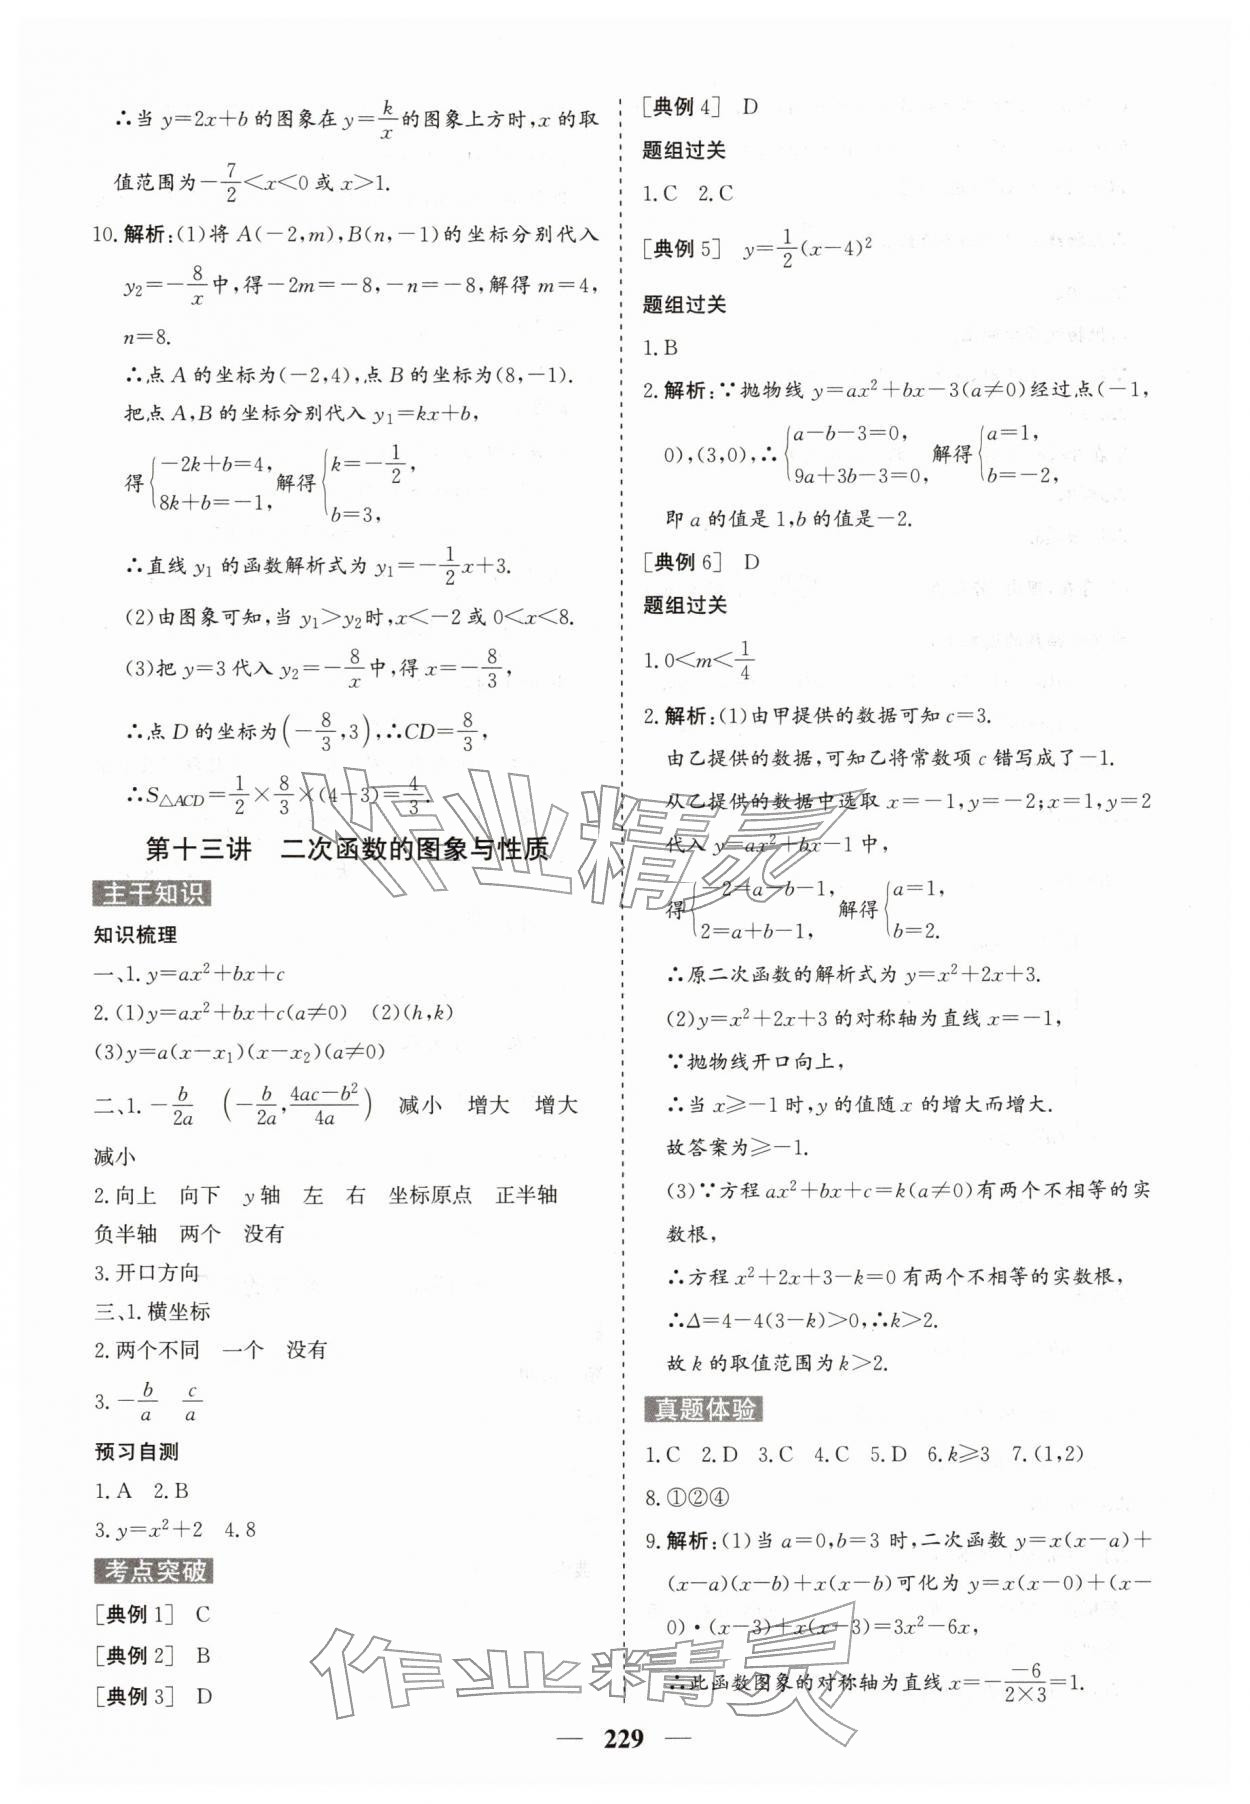 ∴当 y=2x+b 的图象在 y=k/x 的图象上方时,x 的取
值范围为−7/2<x<0 或 x>1.
10. 解析:(1)将 A(−2,m),B(n,−1)的坐标分别代入
y₂=−8/x中,得−2m=−8,−n=−8,解得 m=4,
n=8.
∴点 A 的坐标为(−2,4),点 B 的坐标为(8,−1).
把点 A,B 的坐标分别代入 y₁=kx+b,
得{−2k+b=4, 8k+b=−1, 解得{k=−1/2, b=3,
∴直线 y₁ 的函数解析式为 y₁=−1/2x+3.
(2)由图象可知,当 y₁>y₂时,x<−2 或 0<x<8.
(3)把 y=3 代入 y₂=−8/x中,得 x=−8/3,
∴点 D 的坐标为(−8/3,3),∴CD=8/3,
∴S△ACD=1/2×8/3×(4−3)=4/3.
第十三讲 二次函数的图象与性质
主干知识
知识梳理
一、1. y=ax²+bx+c
2. (1)y=ax²+bx+c(a≠0) (2)(h,k)
(3)y=a(x−x₁)(x−x₂)(a≠0)
二、1. −b/2a (−b/2a, (4ac−b²)/4a) 减小 增大 增大
减小
2. 向上 向下 y 轴 左 右 坐标原点 正半轴
负半轴 两个 没有
3. 开口方向
三、1. 横坐标
2. 两个不同 一个 没有
3. −b/a c/a
预习自测
1. A 2. B
3. y=x²+2 4. 8
考点突破
[典例 1] C
[典例 2] B
[典例 3] D
[典例 4] D
题组过关
1. C 2. C
[典例 5] y=1/2(x−4)²
题组过关
1. B
2. 解析:∵抛物线 y=ax²+bx−3(a≠0)经过点(−1,
0),(3,0),∴{a−b−3=0, 9a+3b−3=0, 解得{a=1, b=−2,
即 a 的值是 1,b 的值是−2.
[典例 6] D
题组过关
1. 0<m<1/4
2. 解析:(1)由甲提供的数据可知 c=3.
由乙提供的数据,可知乙将常数项 c 错写成了−1.
从乙提供的数据中选取 x=−1,y=−2;x=1,y=2
代入 y=ax²+bx−1 中,
得{−2=a−b−1, 2=a+b−1, 解得{a=1, b=2.
∴原二次函数的解析式为 y=x²+2x+3.
(2)y=x²+2x+3 的对称轴为直线 x=−1,
∵抛物线开口向上,
∴当 x≥−1 时,y 的值随 x 的增大而增大.
故答案为≥−1.
(3)∵方程 ax²+bx+c=k(a≠0)有两个不相等的实
数根,
∴方程 x²+2x+3−k=0 有两个不相等的实数根,
∴Δ=4−4(3−k)>0,∴k>2.
故 k 的取值范围为 k>2.
真题体验
1. C 2. D 3. C 4. C 5. D 6. k≥3 7. (1,2)
8. ①②④
9. 解析:(1)当 a=0,b=3 时,二次函数 y=x(x−a)+
(x−a)(x−b)+x(x−b)可化为 y=x(x−0)+(x−
0)·(x−3)+x(x−3)=3x²−6x,
∴此函数图象的对称轴为直线 x=−−6/(2×3)=1.
— 229 —
作业精灵
作业精灵